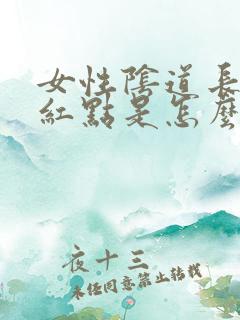 女性陰道長
紅點是怎麼
夜十三
未經同意禁止轉載